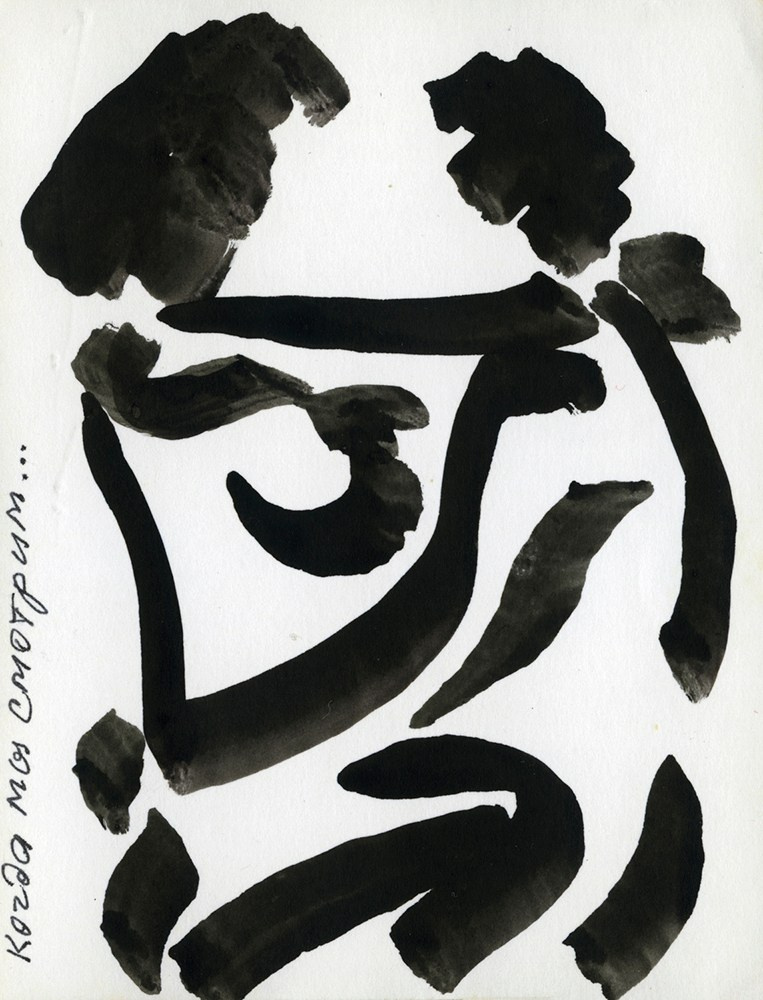 Когда мы смотрим...